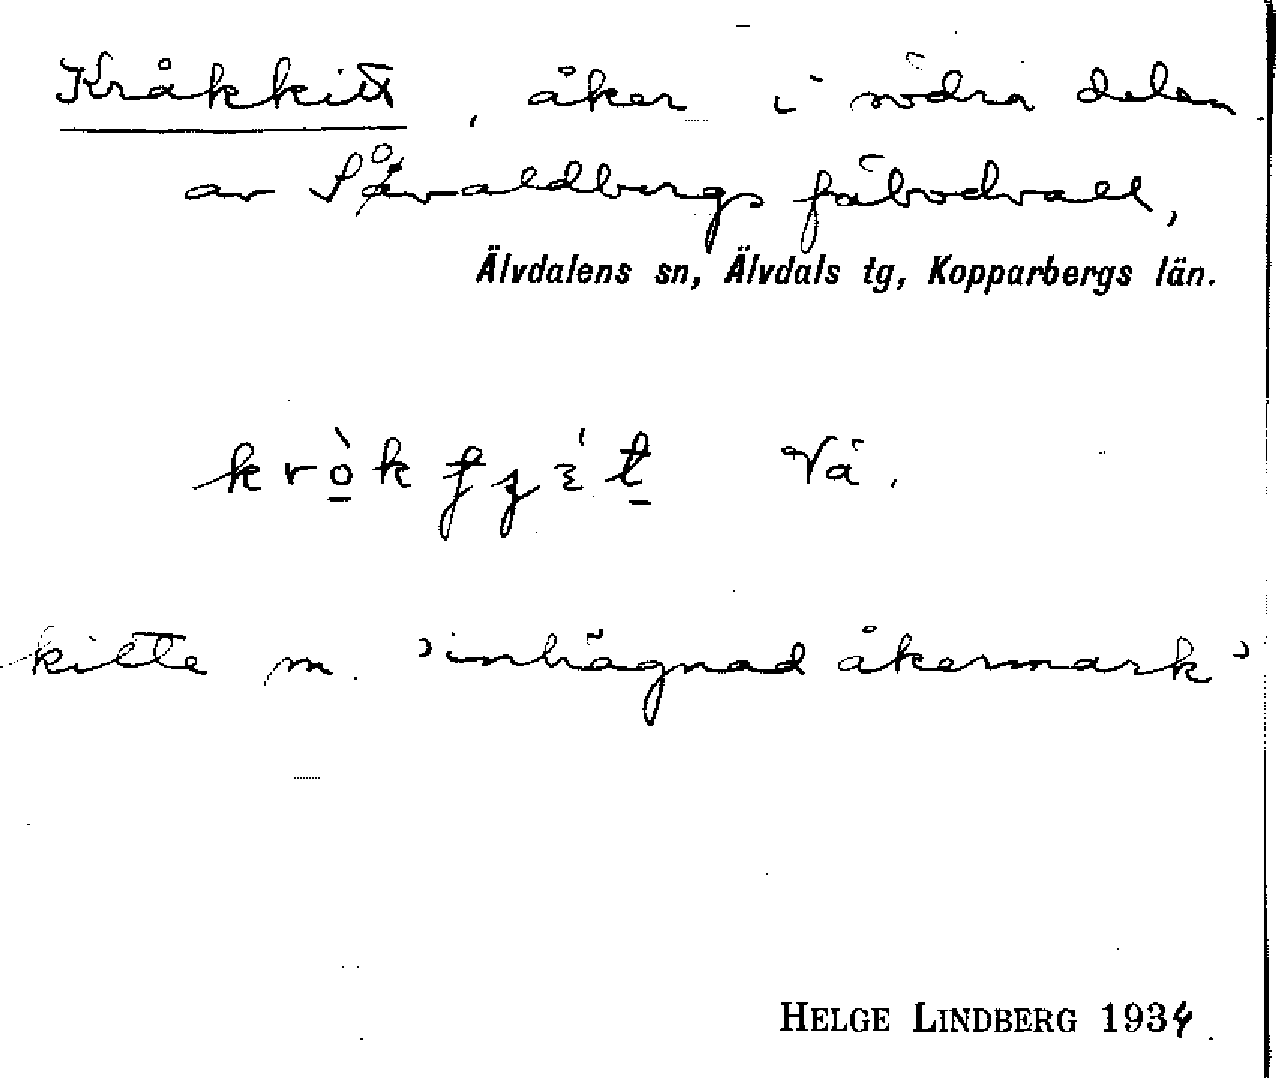 Kråkkitt, åker i södra delen
av Såvaldbergs fäbodvall,
Älvdalens sn, Älvdals tg, Kopparbergs län.
Vä.
kitte m. 'inhägnad åkermark'
HELGE LINDBERG 1934